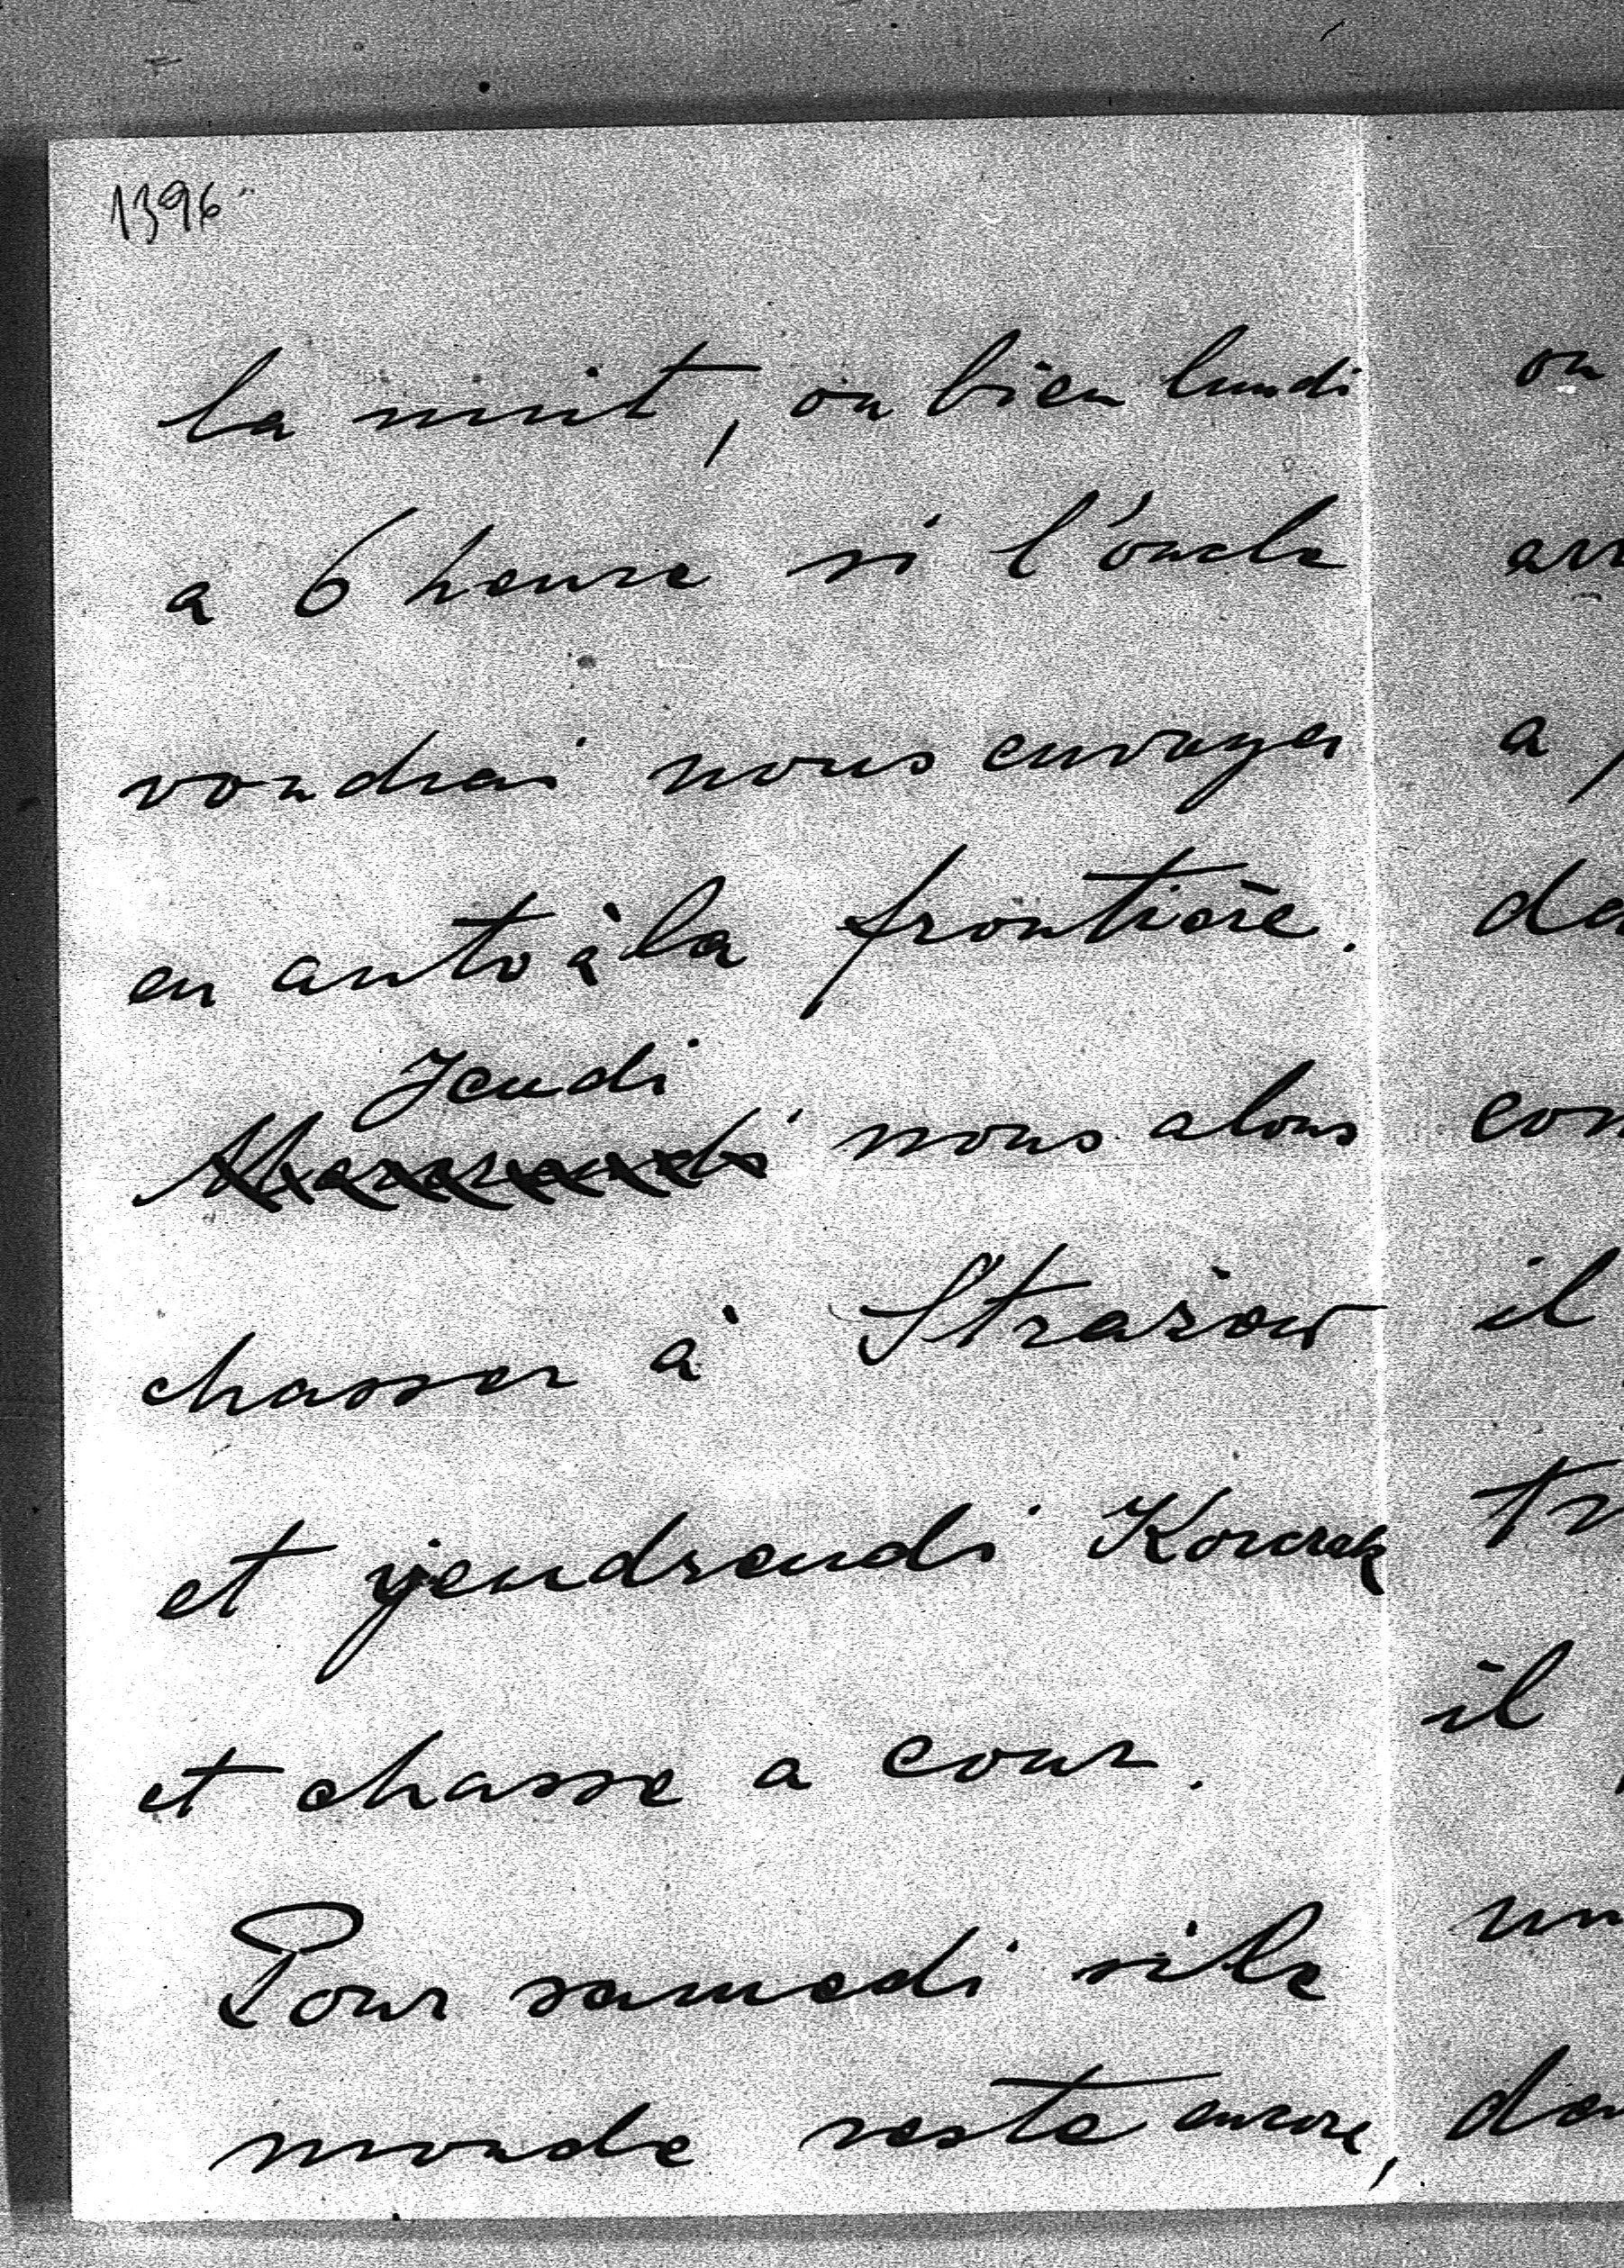 1396
la nuit, ou bien lundi
a 6 heure si l'óncle
voudrai nous envoyer
en auto à la frontière.
Jeudi
nous alons
chasser à Strażow
et vendrendi
et chasse a cour.
Pour samedi si le
monde reste encore,
ou
a
il
il